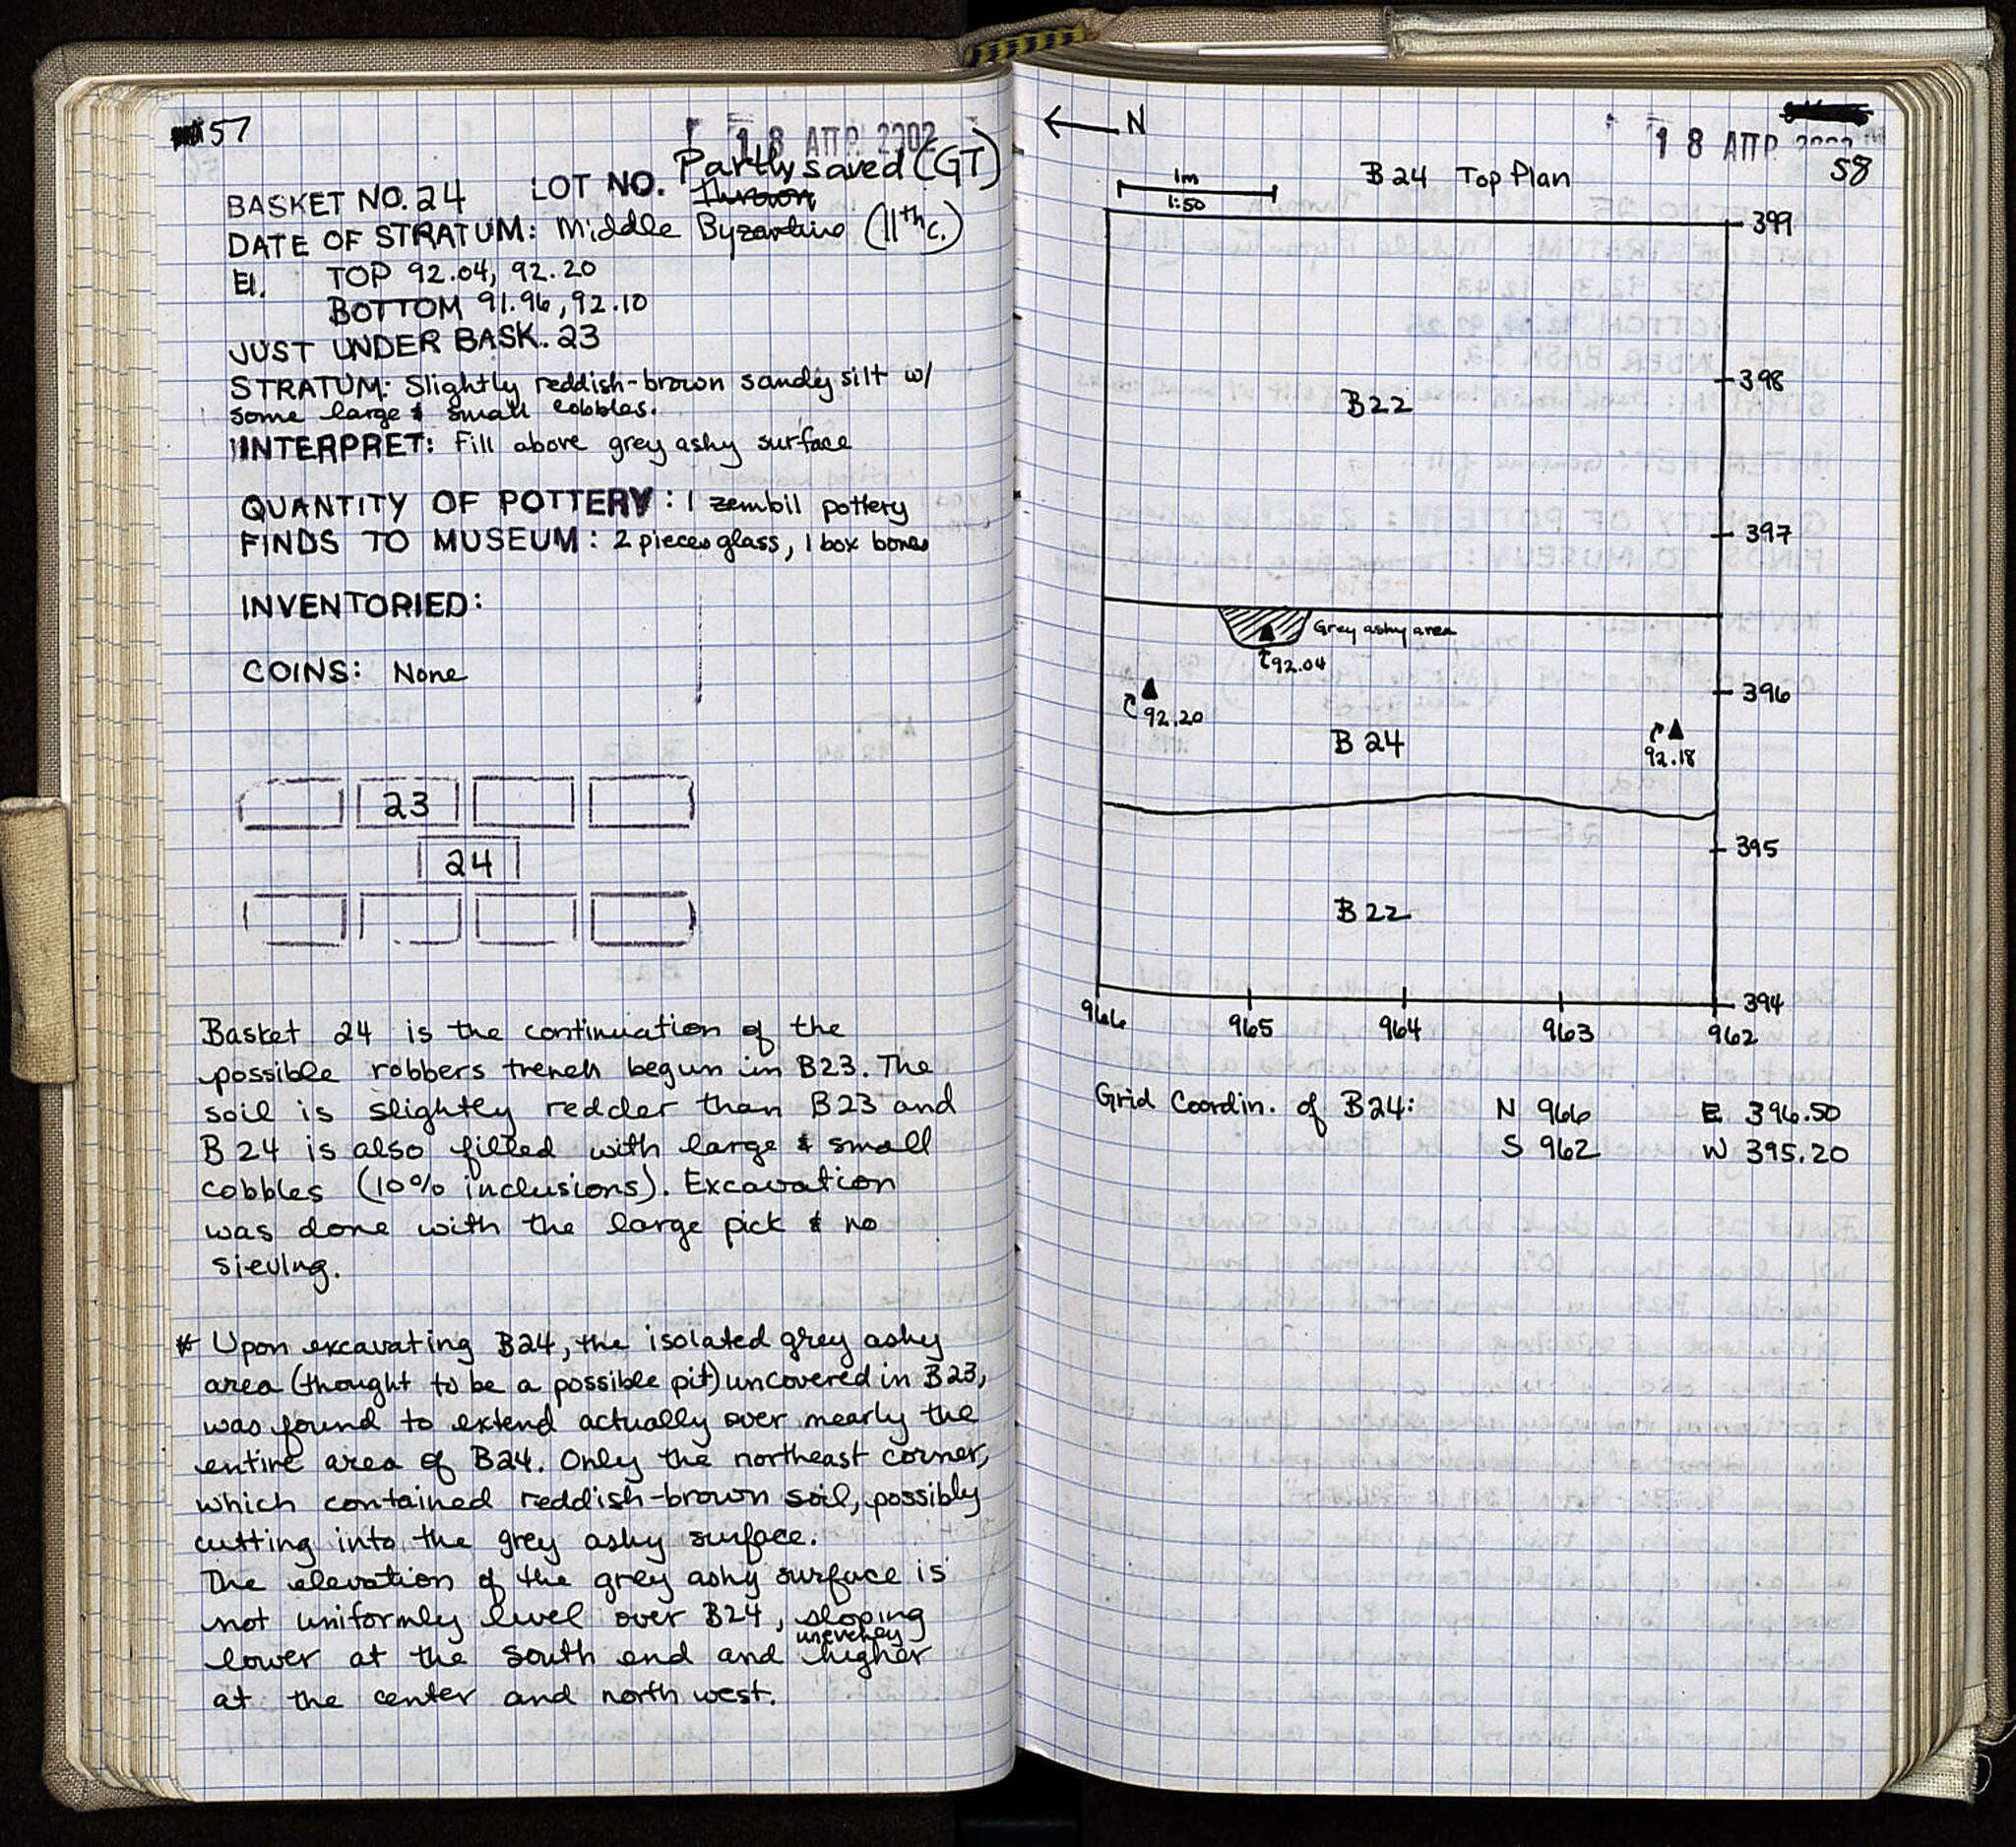 57
18 ΑΠΡ. 2002
BASKET NO. 24 LOT NO. Partly saved (GT)
thrown
DATE OF STRATUM: Middle Byzantine (11th c.)
El. TOP 92.04, 92.20
BOTTOM 91.96, 92.10
JUST UNDER BASK. 23
STRATUM: Slightly reddish-brown sandy silt w/
some large & small cobbles.
INTERPRET: Fill above grey ashy surface
QUANTITY OF POTTERY: 1 zembil pottery
FINDS TO MUSEUM: 2 pieces glass, 1 box bones
INVENTORIED:
COINS: None
23
24
Basket 24 is the continuation of the
possible robbers trench begun in B23. The
soil is slightly redder than B23 and
B24 is also filled with large & small
cobbles (10% inclusions). Excavation
was done with the large pick & no
sieving.
* Upon excavating B24, the isolated grey ashy
area (thought to be a possible pit) uncovered in B23,
was found to extend actually over nearly the
entire area of B24. Only the northeast corner,
which contained reddish-brown soil, possibly
cutting into the grey ashy surface.
The elevation of the grey ashy surface is
not uniformly level over B24, sloping
lower at the south end and unevenly higher
at the center and north west.
N
18 ΑΠΡ
58
1m
1:50
B24 Top Plan
399
398
B22
397
Grey ashy area
92.04
396
92.20
B24
92.18
395
B22
394
966 965 964 963 962
Grid Coordin. of B24: N 966 E 396.50
S 962 W 395.20